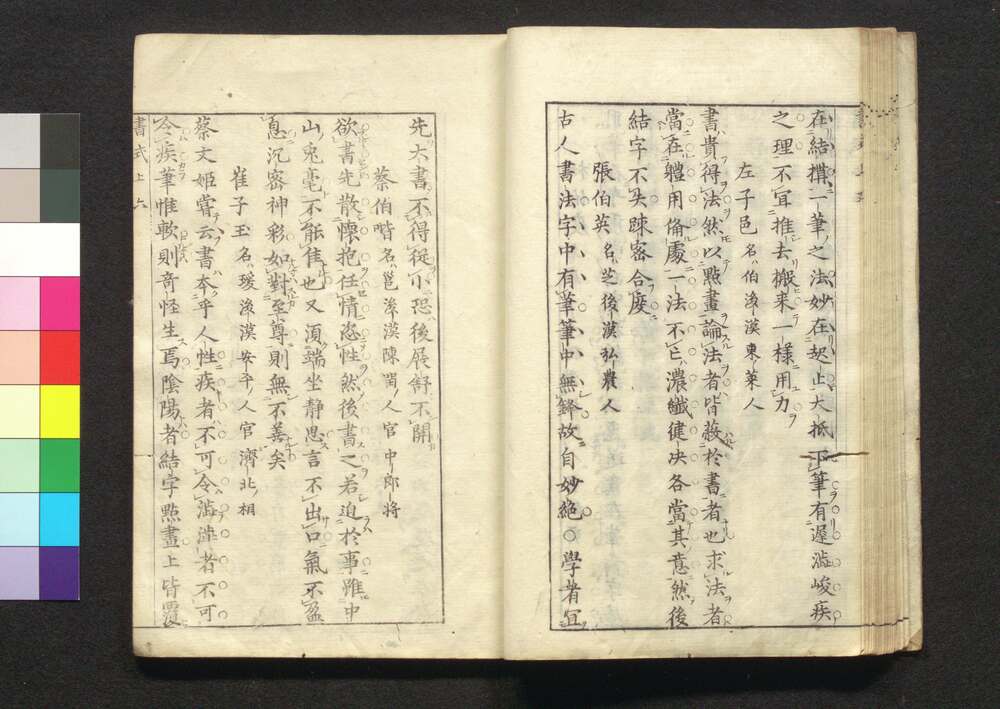 在結構一筆之法妙在起止大抵下筆有遲澁峻疾
之理不冝推去搬来一様用力
左子邑名伯後漢東莱人
書貴得法然以點畫論法者皆蔽於書者也求法者
當在體用偹處一法不亡濃纖健决各當其意然後
結字不失踈密合度
張伯英名芝後漢弘農人
古人書法字中有筆筆中無鋒故自妙絶○學者冝
先大書不得従小恐後展舒不開
蔡伯喈名邕後漢陳留人官中郎将
欲書先散懐抱任情恣性然後書之若迫於事雖中
山兎毫不能佳也又須端坐静思言不出口氣不盈
息沉密神彩如對至尊則無不善矣
崔子玉名瑗後漢安平人官濟北相
蔡文姫嘗云書本乎人性疾者不可令澁澁者不可
令疾筆惟軟則竒怪生焉陰陽者結字點畫上皆覆
書式上 六